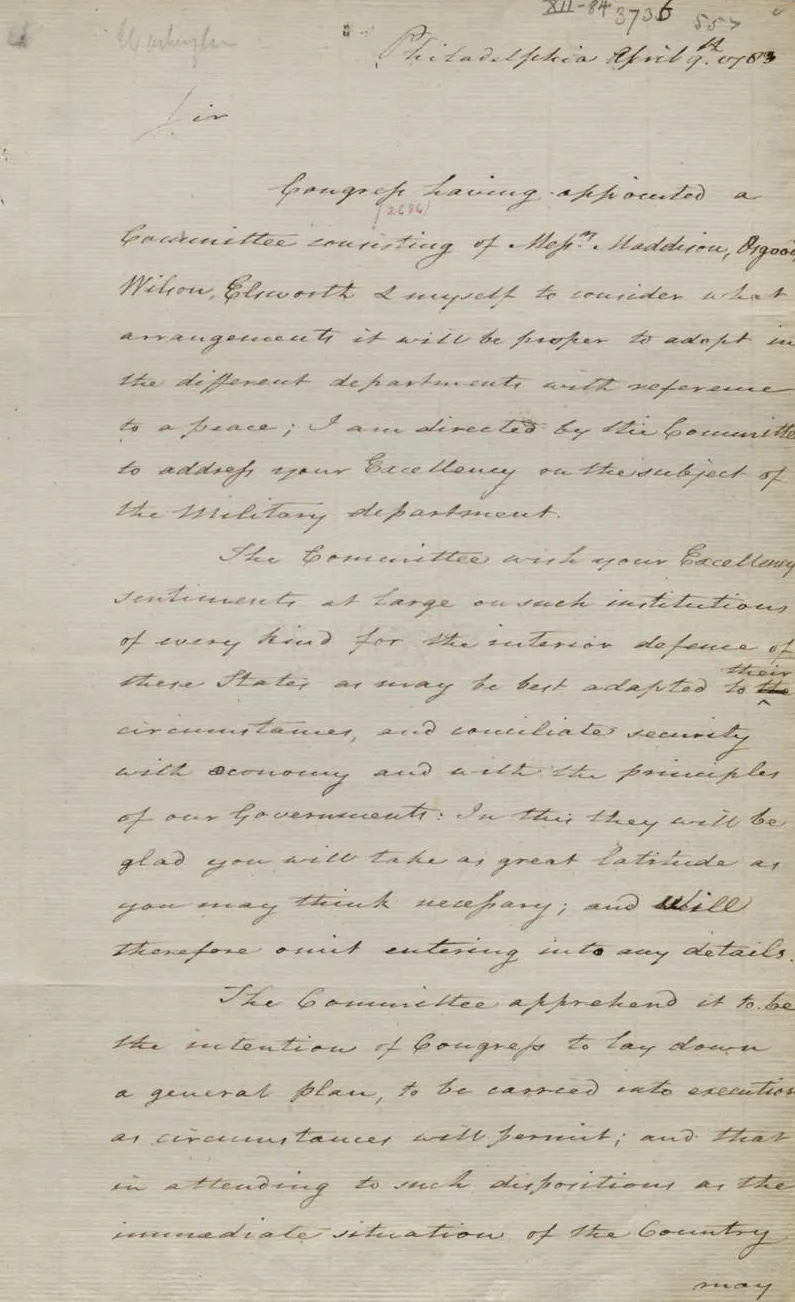 XII-84 3736 557
Washington
Philadelphia April 9th. 1783
Sir
Congress having appointed a
(2686)
Committee consisting of Messrs. Maddison, Osgood,
Wilson, Elsworth & myself to consider what
arrangements it will be proper to adopt in
the different departments with reference
to a peace; I am directed by the Committee
to address your Excellency on the subject of
the Military department.
The Committee wish your Excellency
sentiments at large on such institutions
of every kind for the interior defence of
these States as may be best adapted to the their
circumstances, and conciliate security
with œconomy and with the principles
of our Governments: In this they will be
glad you will take as great latitude as
you may think necessary; and will
therefore omit entering into any details.
The Committee apprehend it to be
the intention of Congress to lay down
a general plan, to be carried into execution
as circumstances will permit; and that
in attending to such dispositions as the
immediate situation of the Country
may